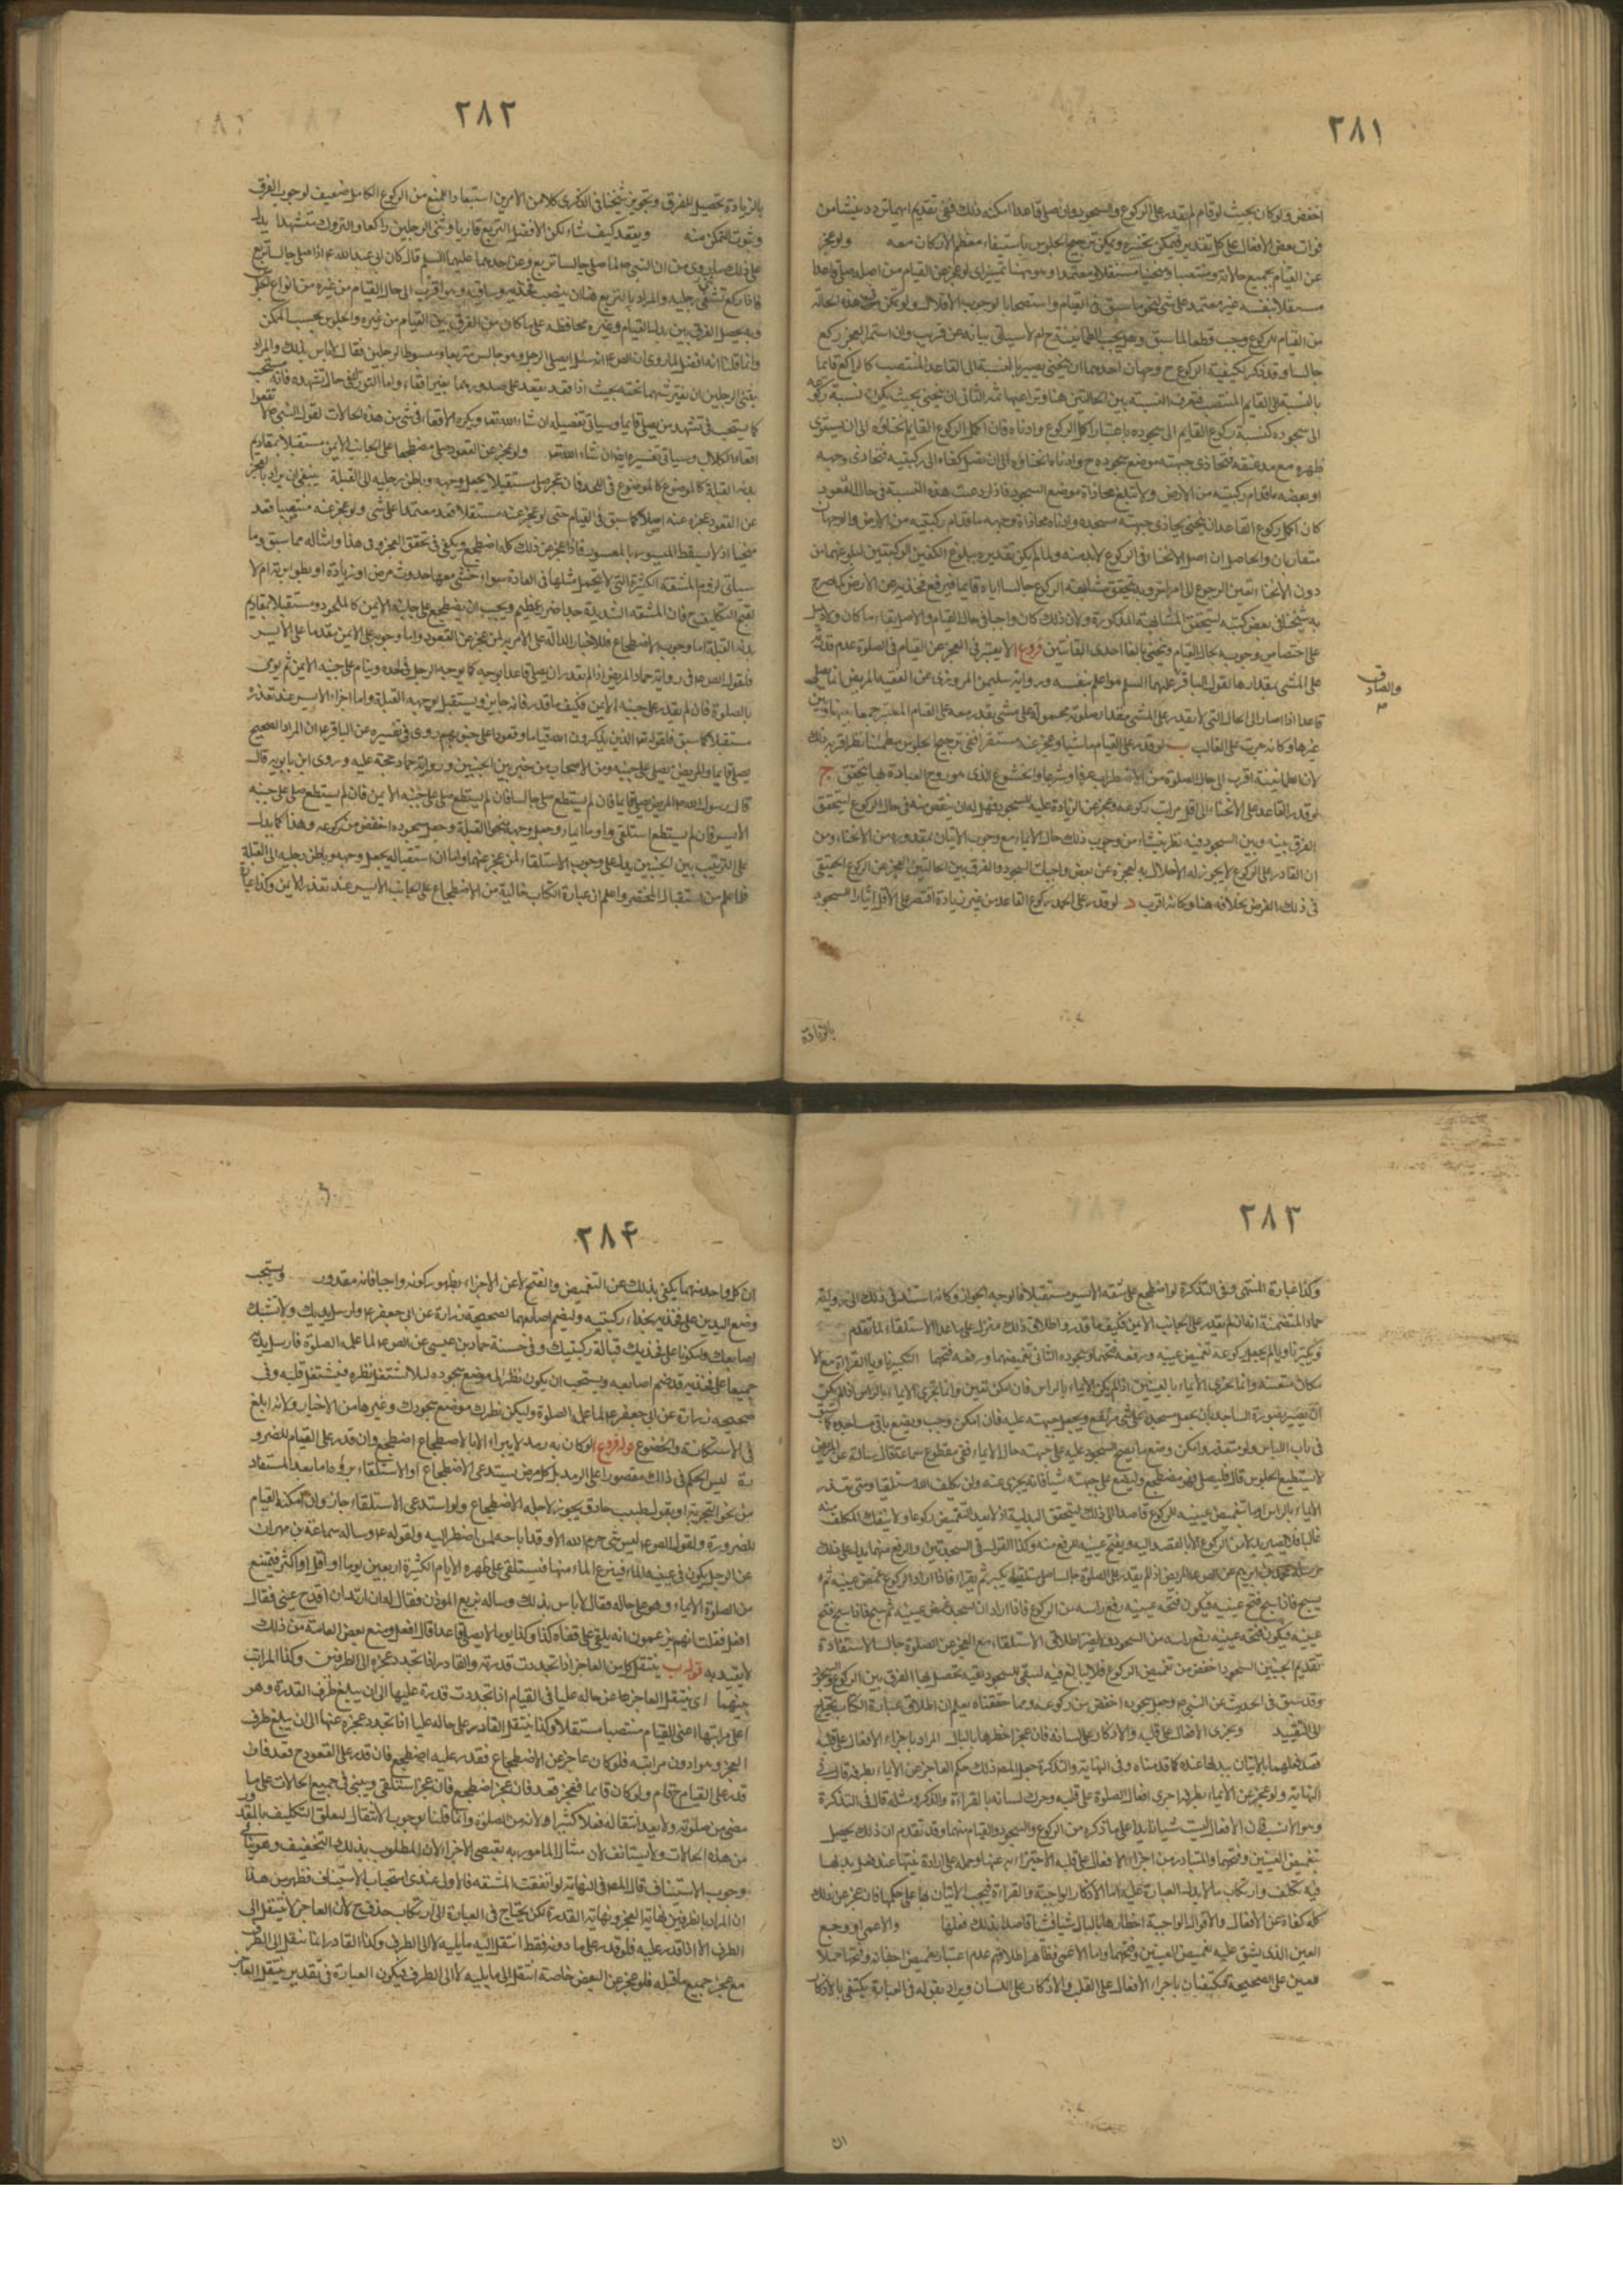 ٢٨١
اخفض ولو كان بحيث لو قام لم يقدر على الركوع والسجود وان صلى قاعدا امكنه ذلك ففي تقديم ايهما تردد ينشا من
فوات بعض الافعال على كل تقدير فيمكن تخييره ويمكن ترجيح الجلوس باستيفاء معظم الاركان معه ولو عجز
عن القيام بجميع حالاته
من القيام للركوع وجب قطعا لما سبق وهل يجب الطمانينة ح ام لا سياتي بيانه عن قريب وان استمر العجز ركع
جالسا وقد ذكر لكيفية الركوع ح وجهان احدهما ان ينحني بحيث يصير بالنسبة الى القاعد المنتصب كالراكع قائما
بالنسبة الى القايم المنتصب فتعرف النسبة بين الحالتين هنا وتراعيها ثمه الثاني ان ينحني بحيث يكون نسبة ركوعه
الى سجوده كنسبة ركوع القايم الى سجوده باعتبار اكمل الركوع وادناه فان اكمل الركوع القايم انحناؤه الى ان يستوي
ظهره مع مد عنقه فتحاذي جبهته موضع سجوده ح وادناه انحناؤه الى ان تصل كفاه الى ركبتيه فتحاذي وجهه
او بعضه ما قدام ركبتيه من الارض ولا تبلغ محاذاة موضع السجود فاذا روعيت هذه النسبة في حال القعود
كان اكمل ركوع القاعد ان ينحني بحيث يحاذي جبهته مسجده وادناه محاذاة وجهه ما قدام ركبتيه من الارض والوجهان
متقاربان والحاصل ان اصل الانحناء في الركوع لا بد منه ولما لم يكن تقديره ببلوغ الكفين الركبتين لبلوغهما من
دون الانحناء تعين الرجوع الى امر اخر وبه يتحقق مشابهة الركوع جالسا اياه قائما فيرفع فخذيه عن الارض كما صرح
به شيخنا في بعض كتبه لتتحقق المشابهة المذكورة ولان ذلك كان واجبا في حال القيام والاصل بقاء ما كان ولا دليل
على اختصاص وجوبه بحال القيام
على المشي بمقدارها لقول الباقر عليهما السلم هو اعلم بنفسه ورواية سليمن المروزي عن الفقيه المريض انما يصلي
قاعدا اذا صار الى الحال التي لا يقدر على المشي مقدار صلوته محمولة على مشي يقدر معه على القيام المعتبر جمعا بينها وبين
غيرها وكانه جرى على الغالب ب لو قدر على القيام ماشيا وعجز عنه مستقرا ففي ترجيح الجلوس مطمئنا نظر اقربه ذلك
لان الطمانينة اقرب الى حال الصلوة من الاضطراب عرفا وشرعا والخشوع الذي هو روح العبادة بها يتحقق ج
لو قدر القاعد على الانحناء الى اقل مراتب ركوعه وعجز عن الزيادة عليه للسجود فهل له ان ينقص منه في حال الركوع ليتحقق
الفرق بينه وبين السجود فيه نظر ينشا من وجوب ذلك حال الايماء مع وجوب الاتيان بمقدوره من الانحناء ومن
ان القادر على الركوع لا يجوز له الاخلال به لعجزه عن بعض واجبات السجود والفرق بين الحالتين العجز عن الركوع الحقيقي
في ذلك الفرض بخلافه هنا وكانه اقرب د لو قدر على احد ركوع القاعد من غير زيادة اقتصر على الاقل ايثارا للسجود
والصادق
بالزيادة
٢٨٢
بالزيادة تحصيلا للفرق وتجويز شيخنا في الذكرى كلا من الامرين استبعادا للمنع من الركوع الكامل ضعيف لوجوب الفرق
وثبوت التمكن منه ويقعد كيف شاء لكن الافضل التربع قاريا ويثني الرجلين راكعا والتورك متشهدا يدل
على ذلك ما روي من ان النبي ص لما صلى جالسا تربع وعن احدهما عليهما السلم قال كان ابي عبد الله ع اذا صلى جالسا تربع
فاذا ركع ثنى رجليه والمراد بالتربع هنا ان ينصب فخذيه وساقيه وهو اقرب الى حال القيام من غيره من انواع الجلوس
وبه يحصل الفرق بين بدل القيام وغيره محافظة على ما كان من الفرق بين القيام من غيره والجلوس بحسب الممكن
وانما قلنا انه افضل لما روي ان الص ع انه سئل ايصلي الرجل وهو جالس متربعا ومبسوط الرجلين فقال لا باس بذلك والمراد
بثني الرجلين ان يفترشهما تحته بحيث اذا قعد يقعد على صدورهما بغير اقعاء واما التورك في حال تشهده فانه يستحب
كما يستحب في تشهد من يصلي قايما وسياتي تفصيله ان شاء الله تعا ويكره الاقعاء في شي من هذه الحالات لقول النبي ص لا تقعوا
اقعاء الكلاب وسياتي تفسيره ايضا ان شاء الله تعا ولو عجز عن القعود صلى مضطجعا على الجانب الايمن مستقبلا بمقاديم
بدنه القبلة كالموضوع في اللحد
عن القعود عجزه عنه اصلا كما سبق في القيام حتى لو عجز عنه مستقلا قعد معتمدا على شي ولو عجز عنه منتصبا قعد
منحنيا اذ لا يسقط الميسور بالمعسور فاذا عجز عن ذلك كله اضطجع ويكفي في تحقق العجز في هذا وامثاله مما سبق وما
سياتي لزوم المشقة الكثيرة التي لا يتحمل مثلها في العادة سواء خشي معها حدوث مرض او زيادة او بطؤ برئه ام لا
لقبح التكليف ح فان المشقة الشديدة جدا ضرر عظيم ويجب ان يضطجع على جانبه الايمن كالملحود ومستقبلا بمقاديم
بدنه القبلة اما وجوب الاضطجاع فللاخبار الدالة على الامر به لمن عجز عن القعود واما وجوبه على الايمن مقدما على الايسر
فلقول الص ع في رواية حماد المريض اذا لم يقدر ان يصلي قاعدا يوجه كما يوجه الرجل في لحده وينام على جنبه الايمن ثم يومي
بالصلوة فان لم يقدر على جنبه الايمن فكيف ما قدر فانه جايز ويستقبل بوجهه القبلة واما اجزاء الايسر عند تعذره
مستقبلا كما سبق فلقوله تعا الذين يذكرون الله قياما وقعودا وعلى جنوبهم روي في تفسيره عن الباقر ع ان المراد الصحيح
يصلي قايما والمريض يصلي على جنبه ومن الاصحاب من خير بين الجنبين ورواية حماد حجة عليه وروى ابن بابويه قال
قال رسول الله ص المريض يصلي قايما فان لم يستطع صلى جالسا فان لم يستطع صلى على جنبه الايمن فان لم يستطع صلى على جنبه
الايسر فان لم يستطع استلقى واوما ايماء وجعل وجهه نحو القبلة وجعل سجوده اخفض من ركوعه وهذا كما يدل
على الترتيب بين الجنبين يدل على وجوب الاستلقاء لمن عجز عنهما واما ان استقباله بجعل وجهه وباطن رجليه الى القبلة
فلما علم من استقبال المحتضر واعلم ان عبارة الكتاب خالية من الاضطجاع على الجانب الايسر عند تعذر الايمن وكذا عبارة
٢٨٣
وكذا عبارة المنتهى وفي التذكرة لو اضطجع على شقه الايسر مستقبلا فالوجه الجواز وكانه استند في ذلك الى رواية
حماد المتضمنة انه ان لم يقدر على الجانب الايمن فكيف ما قدر واطلاق ذلك منزل على ما عدا الاستلقاء لما تقدم
مكان مشقته وانما يجزي الايماء بالعينين اذا لم يمكن الايماء بالراس فان امكن تعين وانما يجزي الايماء بالراس اذا لم يمكن
ان يصير بصورة الساجد بان يجعل مسجده على شي مرتفع ويجعل جبهته عليه فان امكن وجب ويضع باقي مساجده كما سبق
في باب اللباس ولو تعذر وامكن وضع ما يصح السجود عليه على جبهته حال الايماء ففي مقطوع سماعة قال سالته عن المريض
لا يستطيع الجلوس قال فليصل وهو مضطجع وليضع على جبهته شيئا فانه يجزي عنه ولن يكلف الله
الايماء بالراس اوما بتغميض عينيه للركوع قاصدا الى ذلك لتتحقق البدلية اذ لا يعد التغميض ركوعا ولا ينفك المكلف منه
غالبا فلا يصير بدلا من الركوع الا بالقصد اليه وبفتح عينيه للرفع منه وكذا القول في السجدتين والرفع منهما يدل على ذلك
يسبح فاذا سبح فتح عينيه فيكون فتحه عينيه رفع راسه من الركوع فاذا اراد ان يسجد غمض عينيه ثم سبح فاذا سبح فتح
عينيه فيكون فتحه عينيه رفع راسه من السجود ولا يضر اطلاق الاستلقاء مع العجز عن الصلوة جالسا لاستفادة
تقديم الجنبين السجود اخفض من تغميض الركوع فلا يبالغ فيه لتبقى للسجود بقية تحصل بها الفرق بين الركوع والسجود
وقد سبق في الحديث عن النبي ص وجعل سجوده اخفض من ركوعه ومما حققناه يعلم ان اطلاق عبارة الكتاب يحتاج
الى التقييد ويجزي الافعال على قلبه والاذكار على لسانه فان عجز اخطرها بالبال المراد باجراء الافعال على قلبه
قصد فعلها بالاتيان ببدلها عنده كما قدمناه وفي النهاية والتذكرة جعل المص ذلك حكم العاجز عن الايماء بطرفه قال في
النهاية ولو عجز عن الايماء بطرفه اجرى افعال الصلوة على قلبه وحرك لسانه بالقراءة والذكر ومثله قال في التذكرة
وهو الانسب فان الافعال ليست شيئا زايدا على ما ذكره من الركوع والسجود والقيام منهما وقد تقدم ان ذلك يحصل
بتغميض العينين وفتحهما
فيه تكلف وارتكاب ما لا يدل العبارة عليه اما الاذكار الواجبة والقراءة فيجب الاتيان بها على حكمها فان عجز عن ذلك
كله كفاه عن الافعال والاقوال الواجبة اخطارها بالبال شيئا فشيئا قاصدا بذلك فعلها والاعمى او وجع
العين الذي يشق عليه تغميض العينين وفتحهما واما الاعمى فظاهر اطلاقهم عدم اعتبار تغميض اجفانه وفتحها حملا
للعين على الصحيحة فيكتفيان باجراء الافعال على القلب والاذكار على اللسان ويراد بقوله في العبارة يكتفي بالاذكار
ان
٢٨٤
ان كل واحد منهما يكفي بذلك عن التغميض والفتح لا عن الاجزاء بظهور كونه واجبا فانه مقدور ويستحب
وضع اليدين على فخذيه بحذاء ركبتيه وليضم اصابعهما لصحيحة زرارة عن ابي جعفر ع وارسل يديك ولا تشبك
اصابعك وليكونا على فخذيك قبالة ركبتيك وفي حسنة حماد بن عيسى عن الص ع لما علمه الصلوة فارسل يديه
جميعا على فخذيه قد ضم اصابعه ويستحب ان يكون نظر الى موضع سجوده لئلا يشتغل نظره فيشتغل قلبه وفي
صحيحة زرارة عن ابي جعفر ع لما علمه الصلوة وليكن نظرك موضع سجودك وغيرها من الاخبار ولانه ابلغ
في الاستكانة والخضوع قوله فروع ا لو كان به رمد لا يبرأ الا بالاضطجاع اضطجع وان قدر على القيام للضرو
رة ليس الحكم في ذلك مقصورا على الرمد بل كل مرض يستدعي الاضطجاع او الاستلقاء برؤه اما بعد المستفاد
من نحو التجربة او بقول طبيب حاذق يجوز لاجله الاضطجاع ولو استدعى الاستلقاء جاز وان امكنه القيام
للضرورة ولقول الص ع ليس شي حرم الله الا وقد اباحه لمن اضطر اليه ولقوله ع وساله سماعة بن مهران
عن الرجل يكون في عينيه الماء فينزع الماء منها فيستلقي على ظهره الايام الكثيرة اربعين يوما او اقل او اكثر فيمتنع
من الصلوة الا ايماء وهو على حاله فقال لا باس بذلك وساله بزيع الموذن فقال له ان اريد ان اقدح عيني فقال
افعل فقلت انهم يزعمون انه يلقي على قفاه كذا وكذا يوما لا يصلي قاعدا قال افعل ومنع بعض العامة من ذلك
لا يعتد به قوله ب ينتقل كل من العاجز اذا تجددت قدرته والقادر اذا تجدد عجزه الى الطرفين وكذا المراتب
بينهما اي ينتقل العاجز عن حالة عليا في القيام اذا تجددت قدرته عليها الى ان يبلغ طرف القدرة وهو
اعلى مراتبها اعني القيام منتصبا مستقلا وكذا ينتقل القادر على حالة عليا اذا تجدد عجزه عنها الى ان يبلغ طرف
العجز وهو ادون مراتبه فلو كان عاجزا عن الاضطجاع فقدر عليه اضطجع فان قدر على القعود ح قعد فان
قدر على القيام ح قام ولو كان قايما فعجز قعد فان عجز اضطجع فان عجز استلقى ويبني في جميع الحالات على ما
مضى من صلوته ولا يعد انتقاله فعلا كثيرا ولانه من الصلوة وانما قلنا بوجوب الانتقال لتعلق التكليف بالمقدور
من هذه الحالات ولا يستانف لان امتثال المامور به يقتضي الاجزاء لان المطلوب بذلك التخفيف وهو ينافي
وجوب الاستيناف قال المص في النهاية لو اتفقت المشقة فالاولى عندي استحباب الاستيناف فظهر من هذا
ان المراد بالطرفين نهاية العجز ونهاية القدرة لكن يحتاج في العبارة الى ارتكاب حذف ح لان العاجز لا ينتقل الى
الطرف الا اذا قدر عليه فلو قدر على ما دونه فقط انتقل اليه ما يليه لا الى الطرف وكذا القادر انما ينتقل الى الطرف
مع عجز جميع ما قبله فلو عجز عن البعض خاصة انتقل الى ما يليه لا الى الطرف فيكون العبارة في تقدير ينتقل العاجز